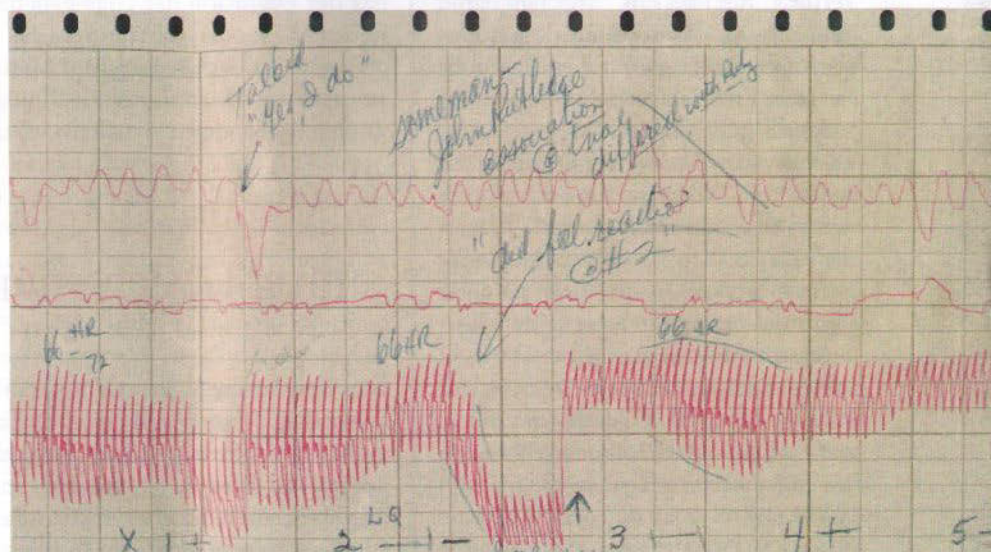 Talked
"Yes, I do"
some man
John Rutledge
association
@ trial
differed with
"did feel reaction
@ #2"
66 HR
72
66 HR
66 HR
X 1 +
2 LQ —
3
4 +
5